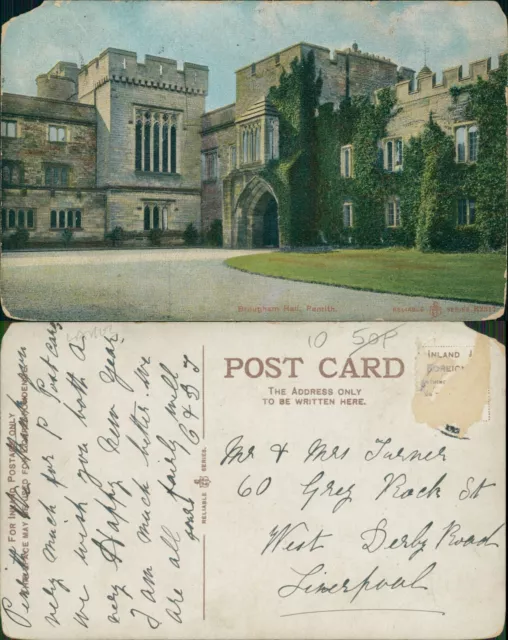 Brougham Hall, Penrith.
RELIABLE SERIES
10 50P
POST CARD
THE ADDRESS ONLY
TO BE WRITTEN HERE.
INLAND
FOREIGN
FOR INLAND POSTAGE ONLY
RELIABLE SERIES
Penrith
very much for P Post Card
we wish you both a
very Happy New Year
I am much better. we
are all fairly well
yours C & B J
Mr & Mrs Turner
60 Grey Rock St
West Derby Road
Liverpool